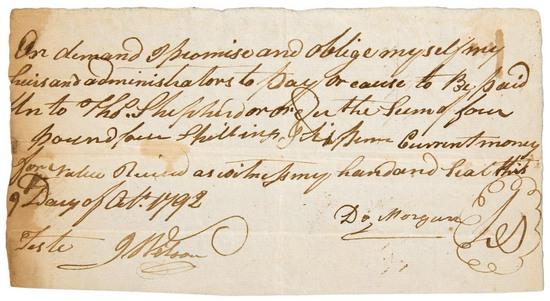 On demand I promise and oblige myself my
heirs and administrators to pay or cause to Be paid
Un to Thos. Shepherd or order the Sum of four
pound four Shillins & Current money
for value Recived as witness my hand and Seal this
9 Day of Oct. 1792
Dl Morgan
Teste J Wilson